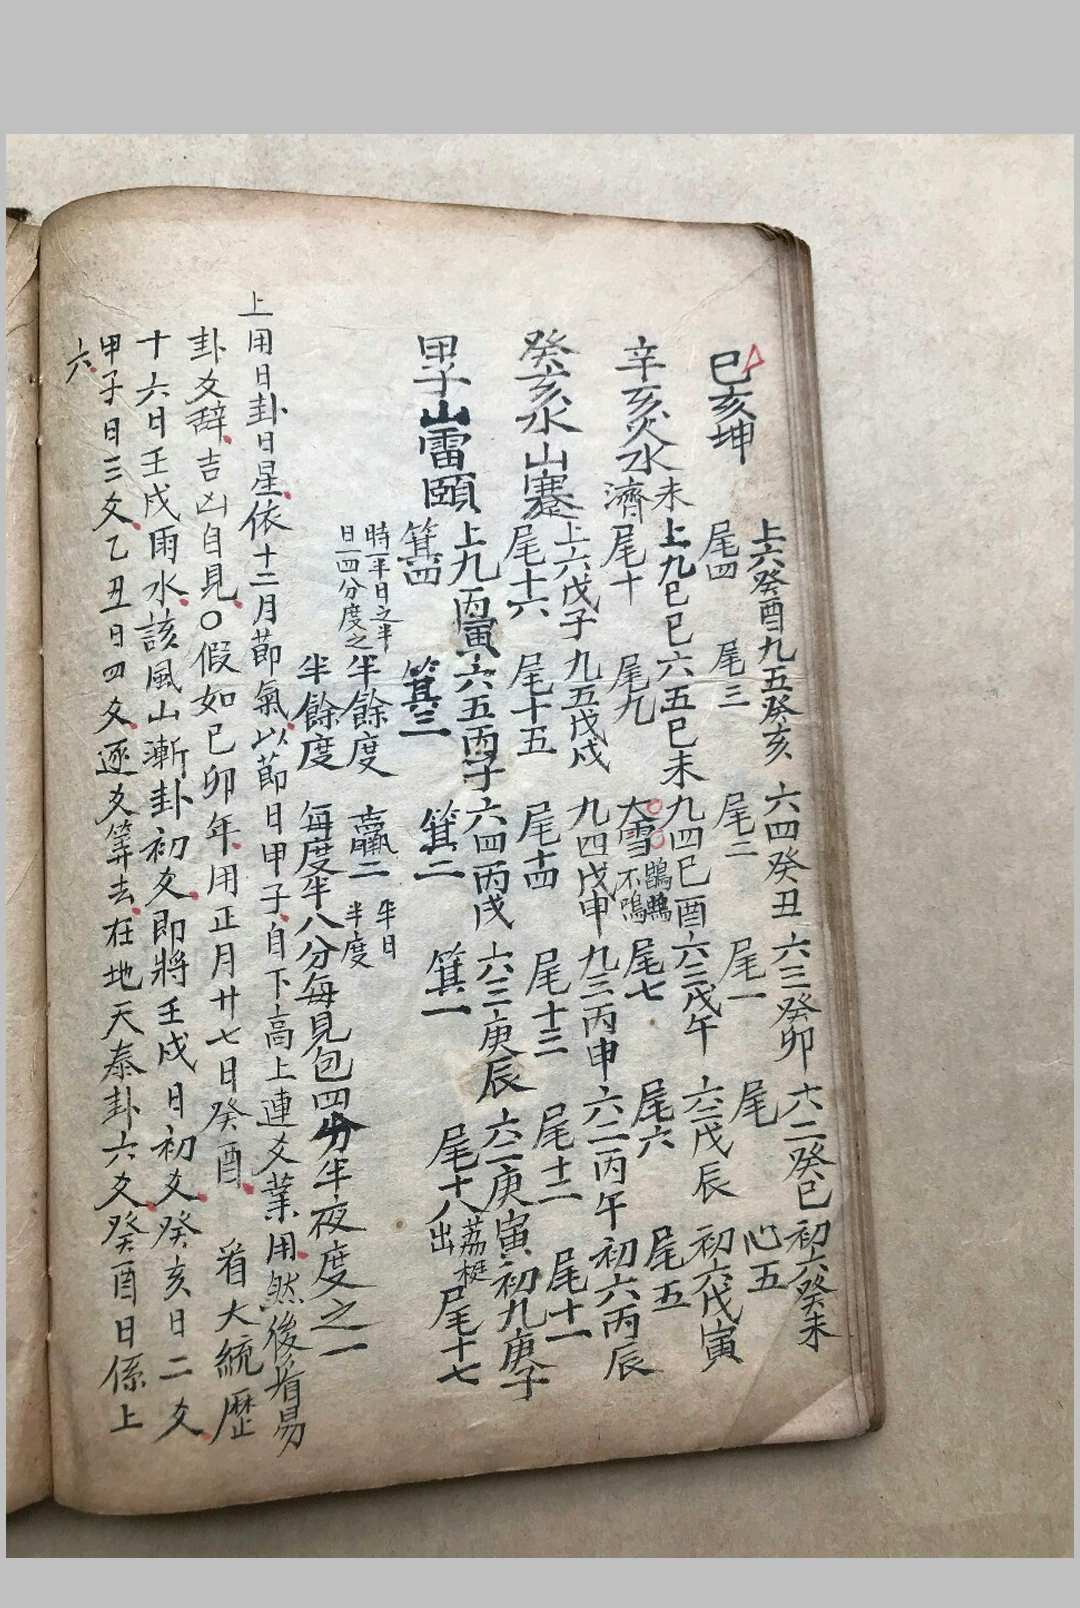 巳亥坤
上六癸酉九五癸亥六四癸丑六三癸卯六二癸巳初六癸未
尾四尾三尾二尾一尾心五
辛亥火水未濟
上九己巳六五己未九四己酉六三戊午六二戊辰初六戊寅
尾十尾九大雪鶡鴠不鳴尾七尾六尾五
癸亥水山蹇
上六戊子九五戊戌九四戊申九三丙申六二丙午初六丙辰
尾十六尾十五尾十四尾十三尾十二尾十一
甲子山雷頤
上九丙寅六五丙子六四丙戌六三庚辰六二庚寅初九庚子
箕四箕三箕二箕一尾十八荔梃出尾十七
時一年日之半半餘度贏二半日
日一四分度之半餘度半度
每度半八分每見包四分半夜度之一
上用日卦日星依十二月節氣以節日甲子自下高上連爻業用然後看易
卦爻辭吉凶自見〇假如己卯年用正月廿七日癸酉看大統歷
十六日壬戌雨水該風山漸卦初爻即將壬戌日初爻癸亥日二爻
甲子日三爻乙丑日四爻逐爻筭去在地天泰卦六爻癸酉日係上
六